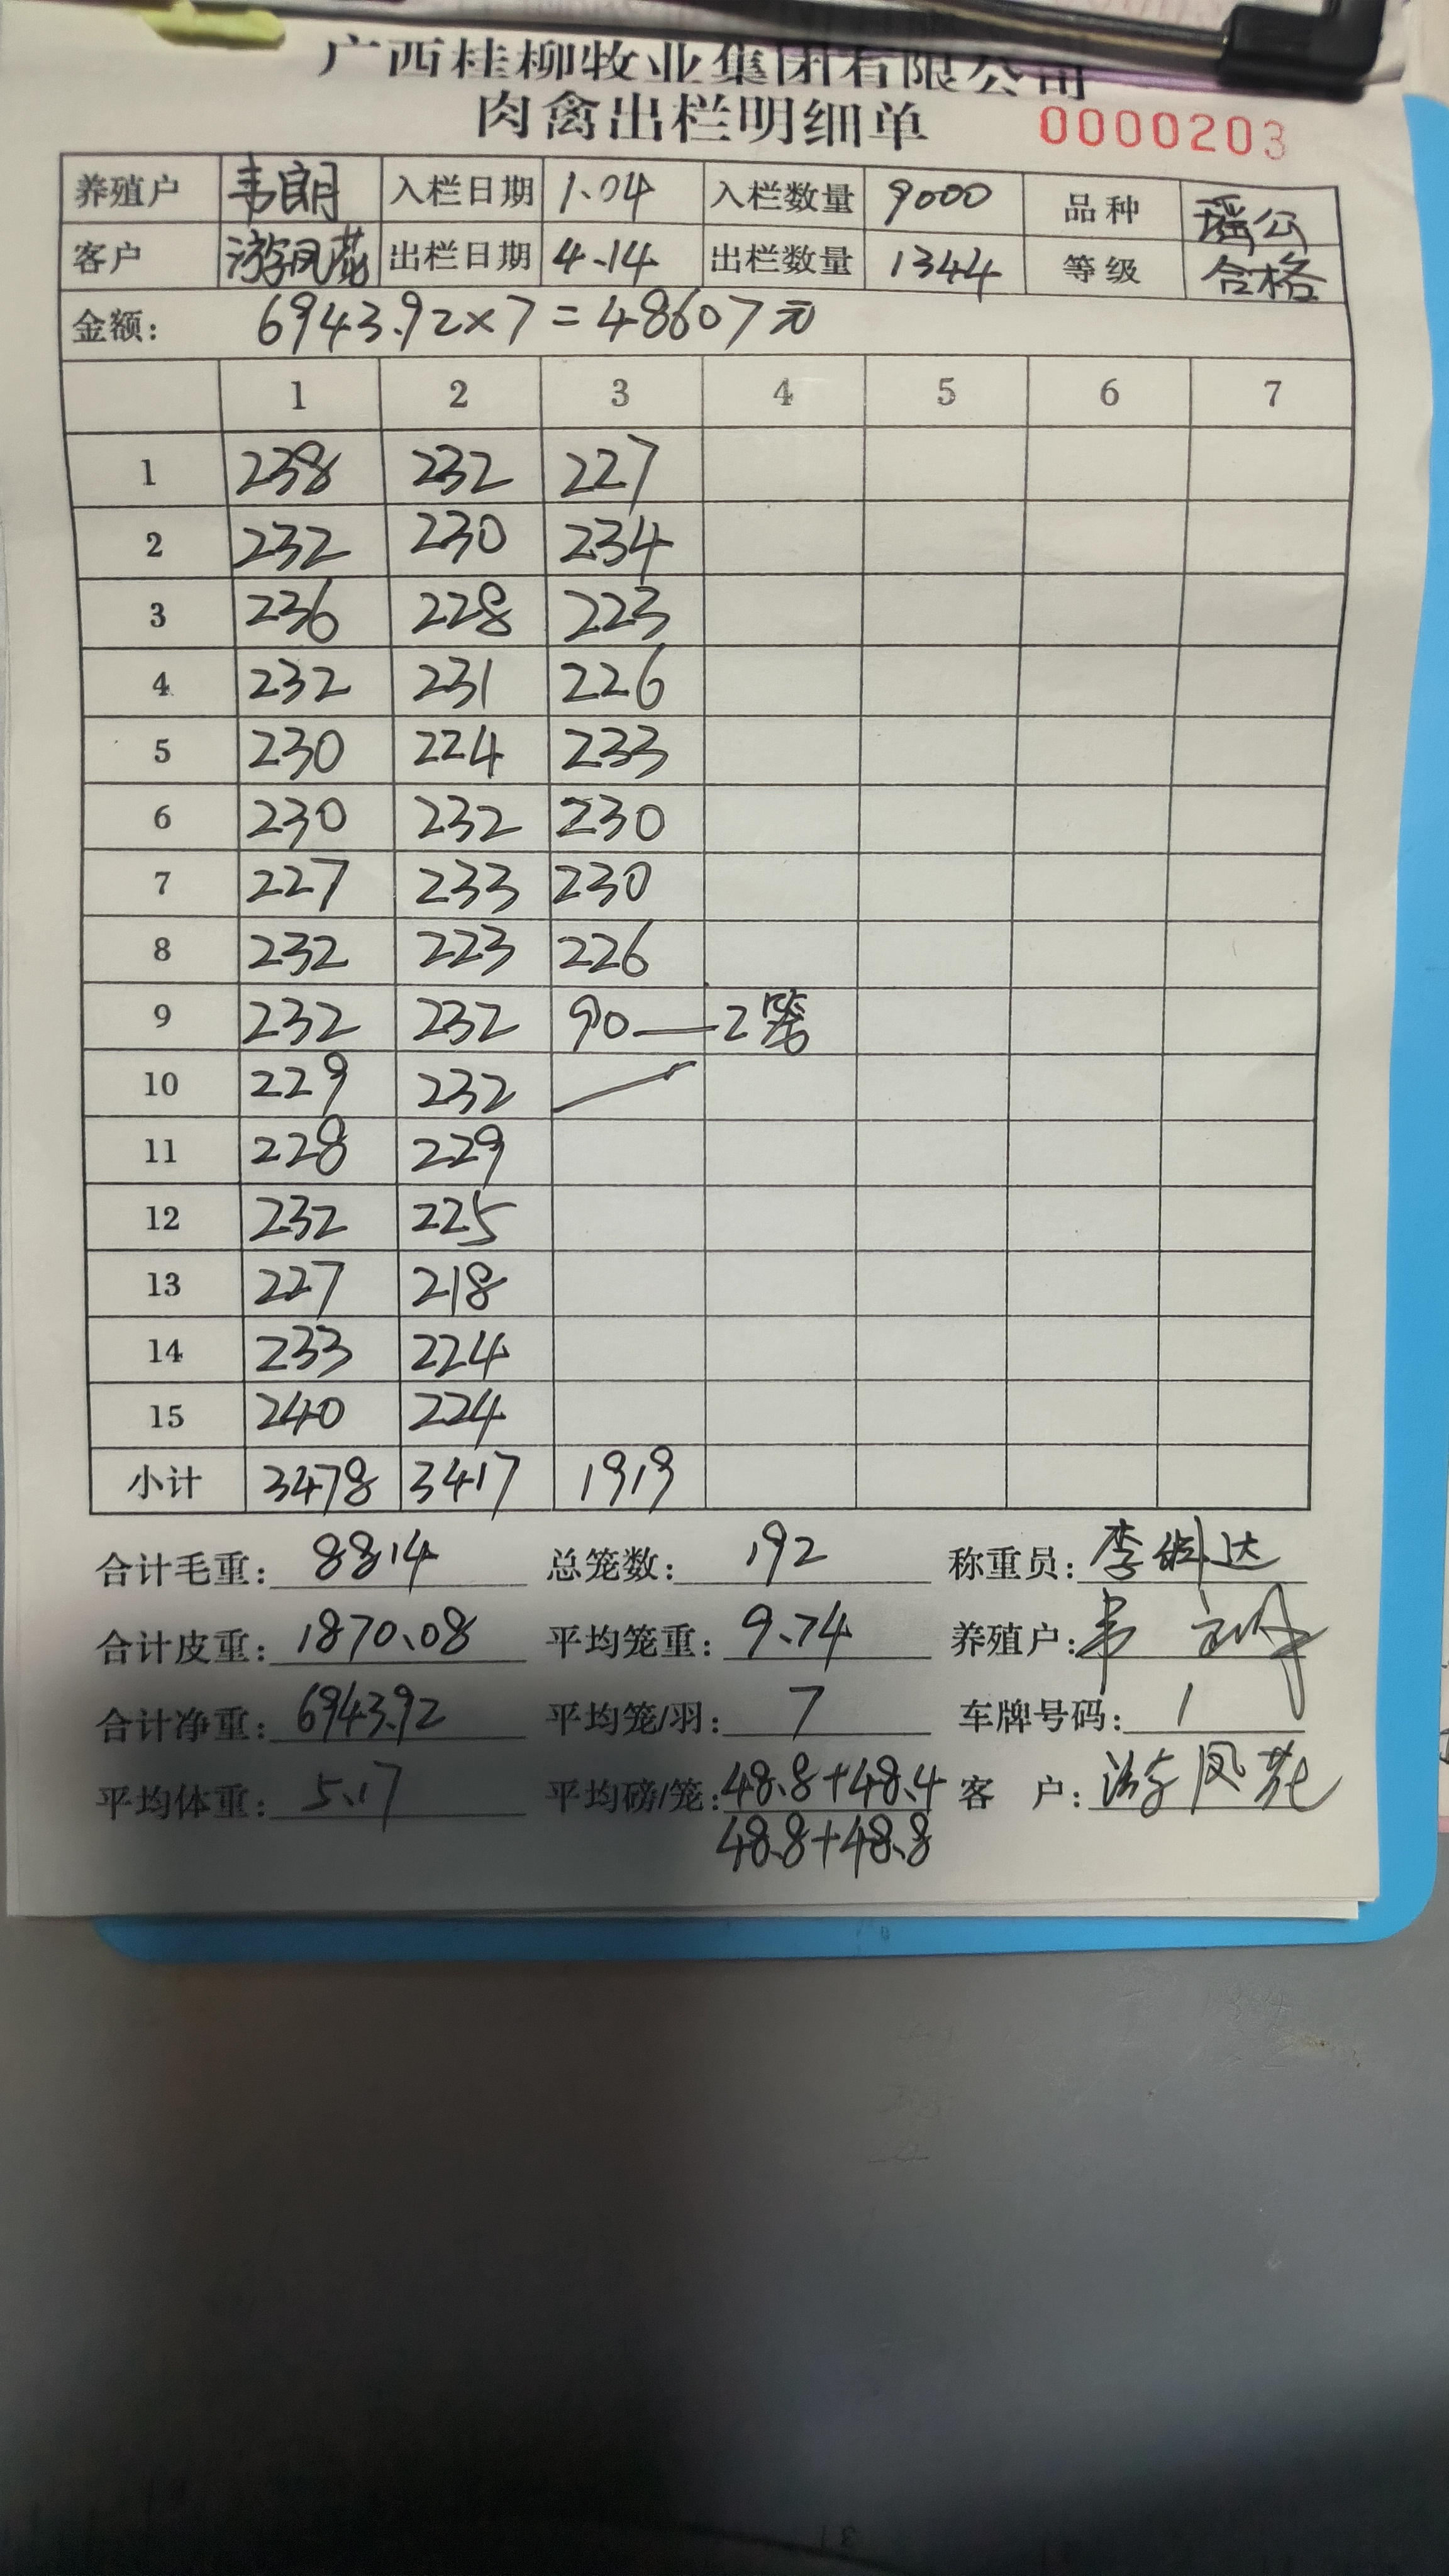 广西桂柳牧业集团有限公司
肉禽出栏明细单 0000203
养殖户 韦朗 入栏日期 1.04 入栏数量 9000 品种 瑶公
客户 游凤苑 出栏日期 4.14 出栏数量 1344 等级 合格
金额: 6943.92×7=48607元
1 2 3 4 5 6 7
1 238 232 227
2 232 230 234
3 236 228 223
4 232 231 226
5 230 224 233
6 230 232 230
7 227 233 230
8 232 223 226
9 232 232 90—2笼
10 229 232
11 228 229
12 232 225
13 227 218
14 233 224
15 240 224
小计 3478 3417 1919
合计毛重: 8814 总笼数: 192 称重员: 李 达
合计皮重: 1870.08 平均笼重: 9.74 养殖户: 韦
合计净重: 6943.92 平均笼/羽: 7 车牌号码: 1
平均体重: 5.17 平均磅/笼: 48.8+48.4 客户: 游凤苑
48.8+48.8